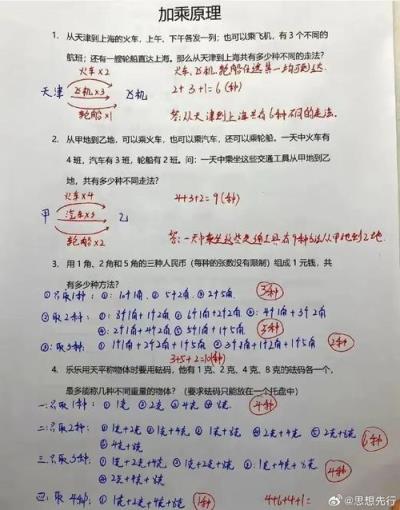 加乘原理
1. 从天津到上海的火车，上午、下午各发一列；也可以乘飞机，有 3 个不同的
航班；还有一艘轮船直达上海。那么从天津到上海共有多少种不同的走法？
火车×2
火车、飞机、轮船任选其一均可到达
天津 飞机×3 飞机
2+3+1=6(种)
轮船×1
答：从天津到上海共有6种不同的走法。
2. 从甲地到乙地，可以乘火车，也可以乘汽车，还可以乘轮船。一天中火车有
4 班，汽车有 3 班，轮船有 2 班。问：一天中乘坐这些交通工具从甲地到乙
地，共有多少种不同走法？
火车×4
甲 汽车×3 乙
4+3+2=9(种)
轮船×2
答：一天中乘坐这些交通工具有9种方法从甲地到乙地
3. 用 1 角、2 角和 5 角的三种人民币（每种的张数没有限制）组成 1 元钱，共
有多少种方法？
①只取1种：①：10个1角 ②5个2角 ③2个5角 3种
②取2种：①：8个1角+1个2角 ②6个1角+2个2角 ③：4个1角+3个2角
④：2个1角+4个2角 ⑤5个1角+1个5角 5种
③：取3种：①1个1角+2个2角+1个5角 ②3个1角+1个2角+1个5角 2种
3+5+2=10(种)
4. 乐乐用天平称物体时要用砝码，他有 1 克、2 克、4 克、8 克的砝码各一个，
最多能称几种不同重量的物体？（要求砝码只能放在一个托盘中）
一：只取1种：①1克 ②2克 ③4克 ④8克 4种
二：只取2种：①1克+2克 ②1克+4克 ③1克+8克 ④2克+4克 ⑤2克+8克
⑥4克+8克 6种
三：只取3种：①1克+2克+4克 ②1克+2克+8克 ③1克+4克+8克
④2克+4克+8克 4种
四：取4种：①1克+2克+4克+8克 1种 4+6+4+1=
@思想先行